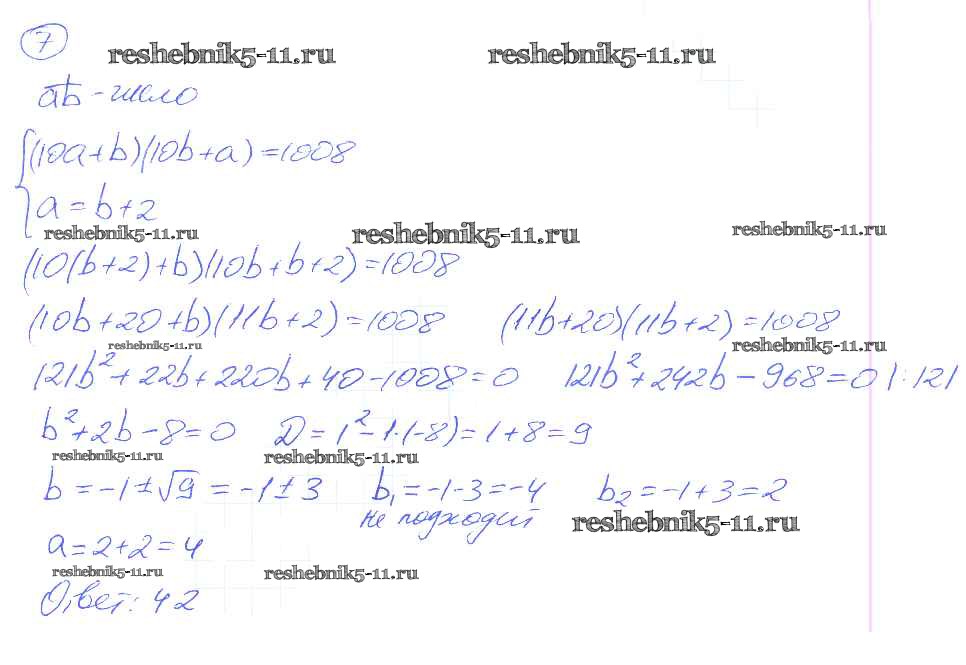 7
reshebnik5-11.ru reshebnik5-11.ru
ab - число
(10a+b)(10b+a)=1008
a=b+2
reshebnik5-11.ru reshebnik5-11.ru reshebnik5-11.ru
(10(b+2)+b)(10b+b+2)=1008
(10b+20+b)(11b+2)=1008 (11b+20)(11b+2)=1008
reshebnik5-11.ru reshebnik5-11.ru
121b²+22b+220b+40-1008=0 121b²+242b-968=0 |:121
b²+2b-8=0 D=1²-1·(-8)=1+8=9
reshebnik5-11.ru reshebnik5-11.ru
b=-1±√9=-1±3 b₁=-1-3=-4 b₂=-1+3=2
не подходит reshebnik5-11.ru
a=2+2=4
reshebnik5-11.ru reshebnik5-11.ru
Ответ: 42